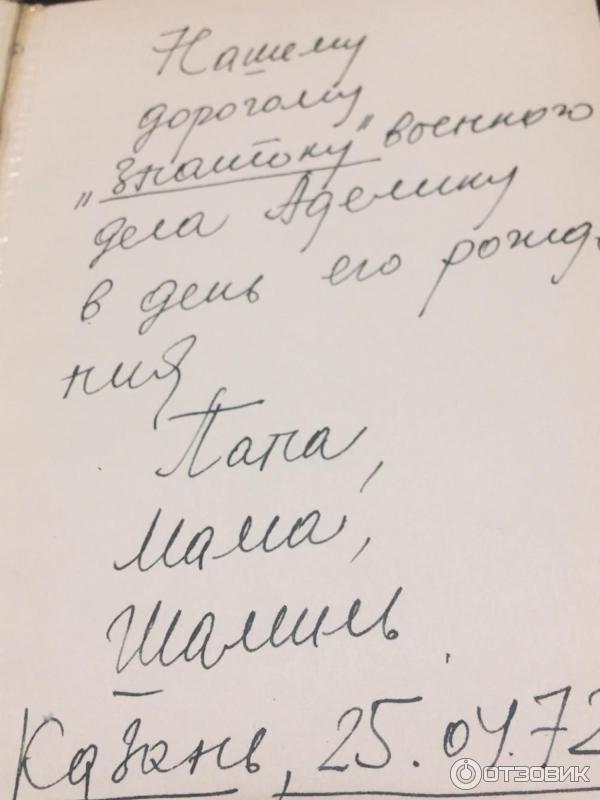 Нашему
дорогому
„Знатоку" военного
дела Аделику
в день его рожд
ния
Папа,
Мама,
Шамиль.
Казань, 25.04.72
ОТЗОВИК